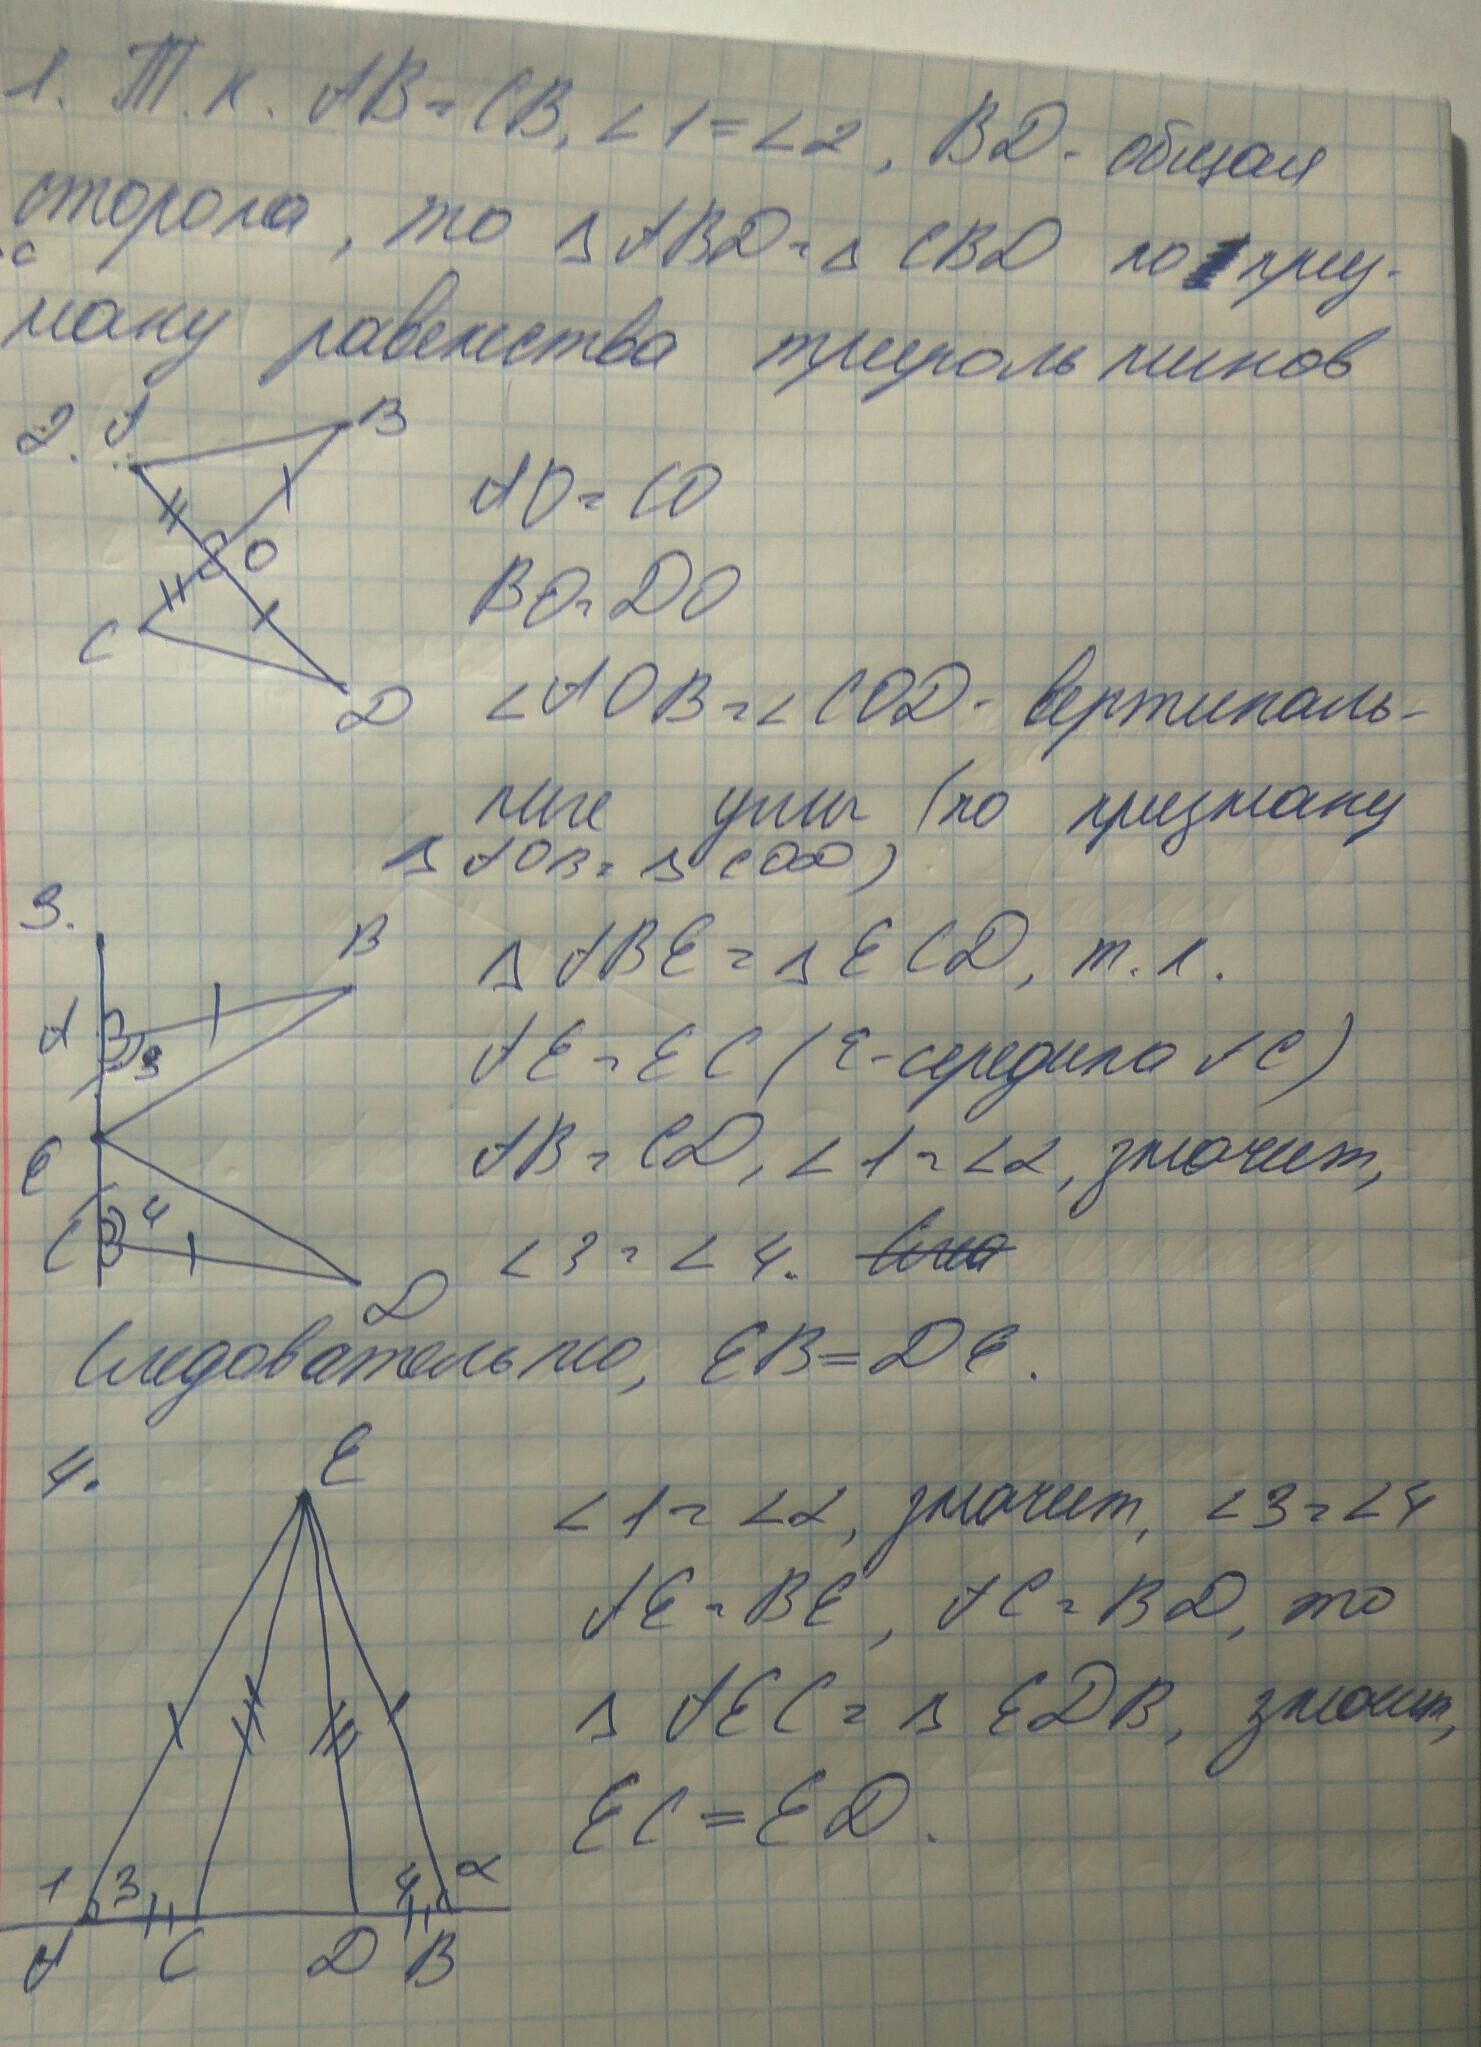 1. Т.к. AB=CB, ∠1=∠2, BD- общая
сторона, то Δ ABD=Δ CBD по 1 приз-
наку равенства треугольников
2. A B
AO=CO
O
BO=DO
C
D ∠AOB=∠COD- вертикаль-
ные углы (по признаку
Δ AOB=Δ COD)
3. B
Δ ABE=Δ ECD, т.к.
A 3
AE=EC (E-середина AC)
E
AB=CD, ∠1=∠2, значит,
C 4
∠3=∠4.
D
Следовательно, EB=DE.
4. E
∠1=∠2, значит, ∠3=∠4
AE=BE, AC=BD, то
Δ AEC=Δ EDB, значит,
EC=ED.
1 3 4 2
A C D B